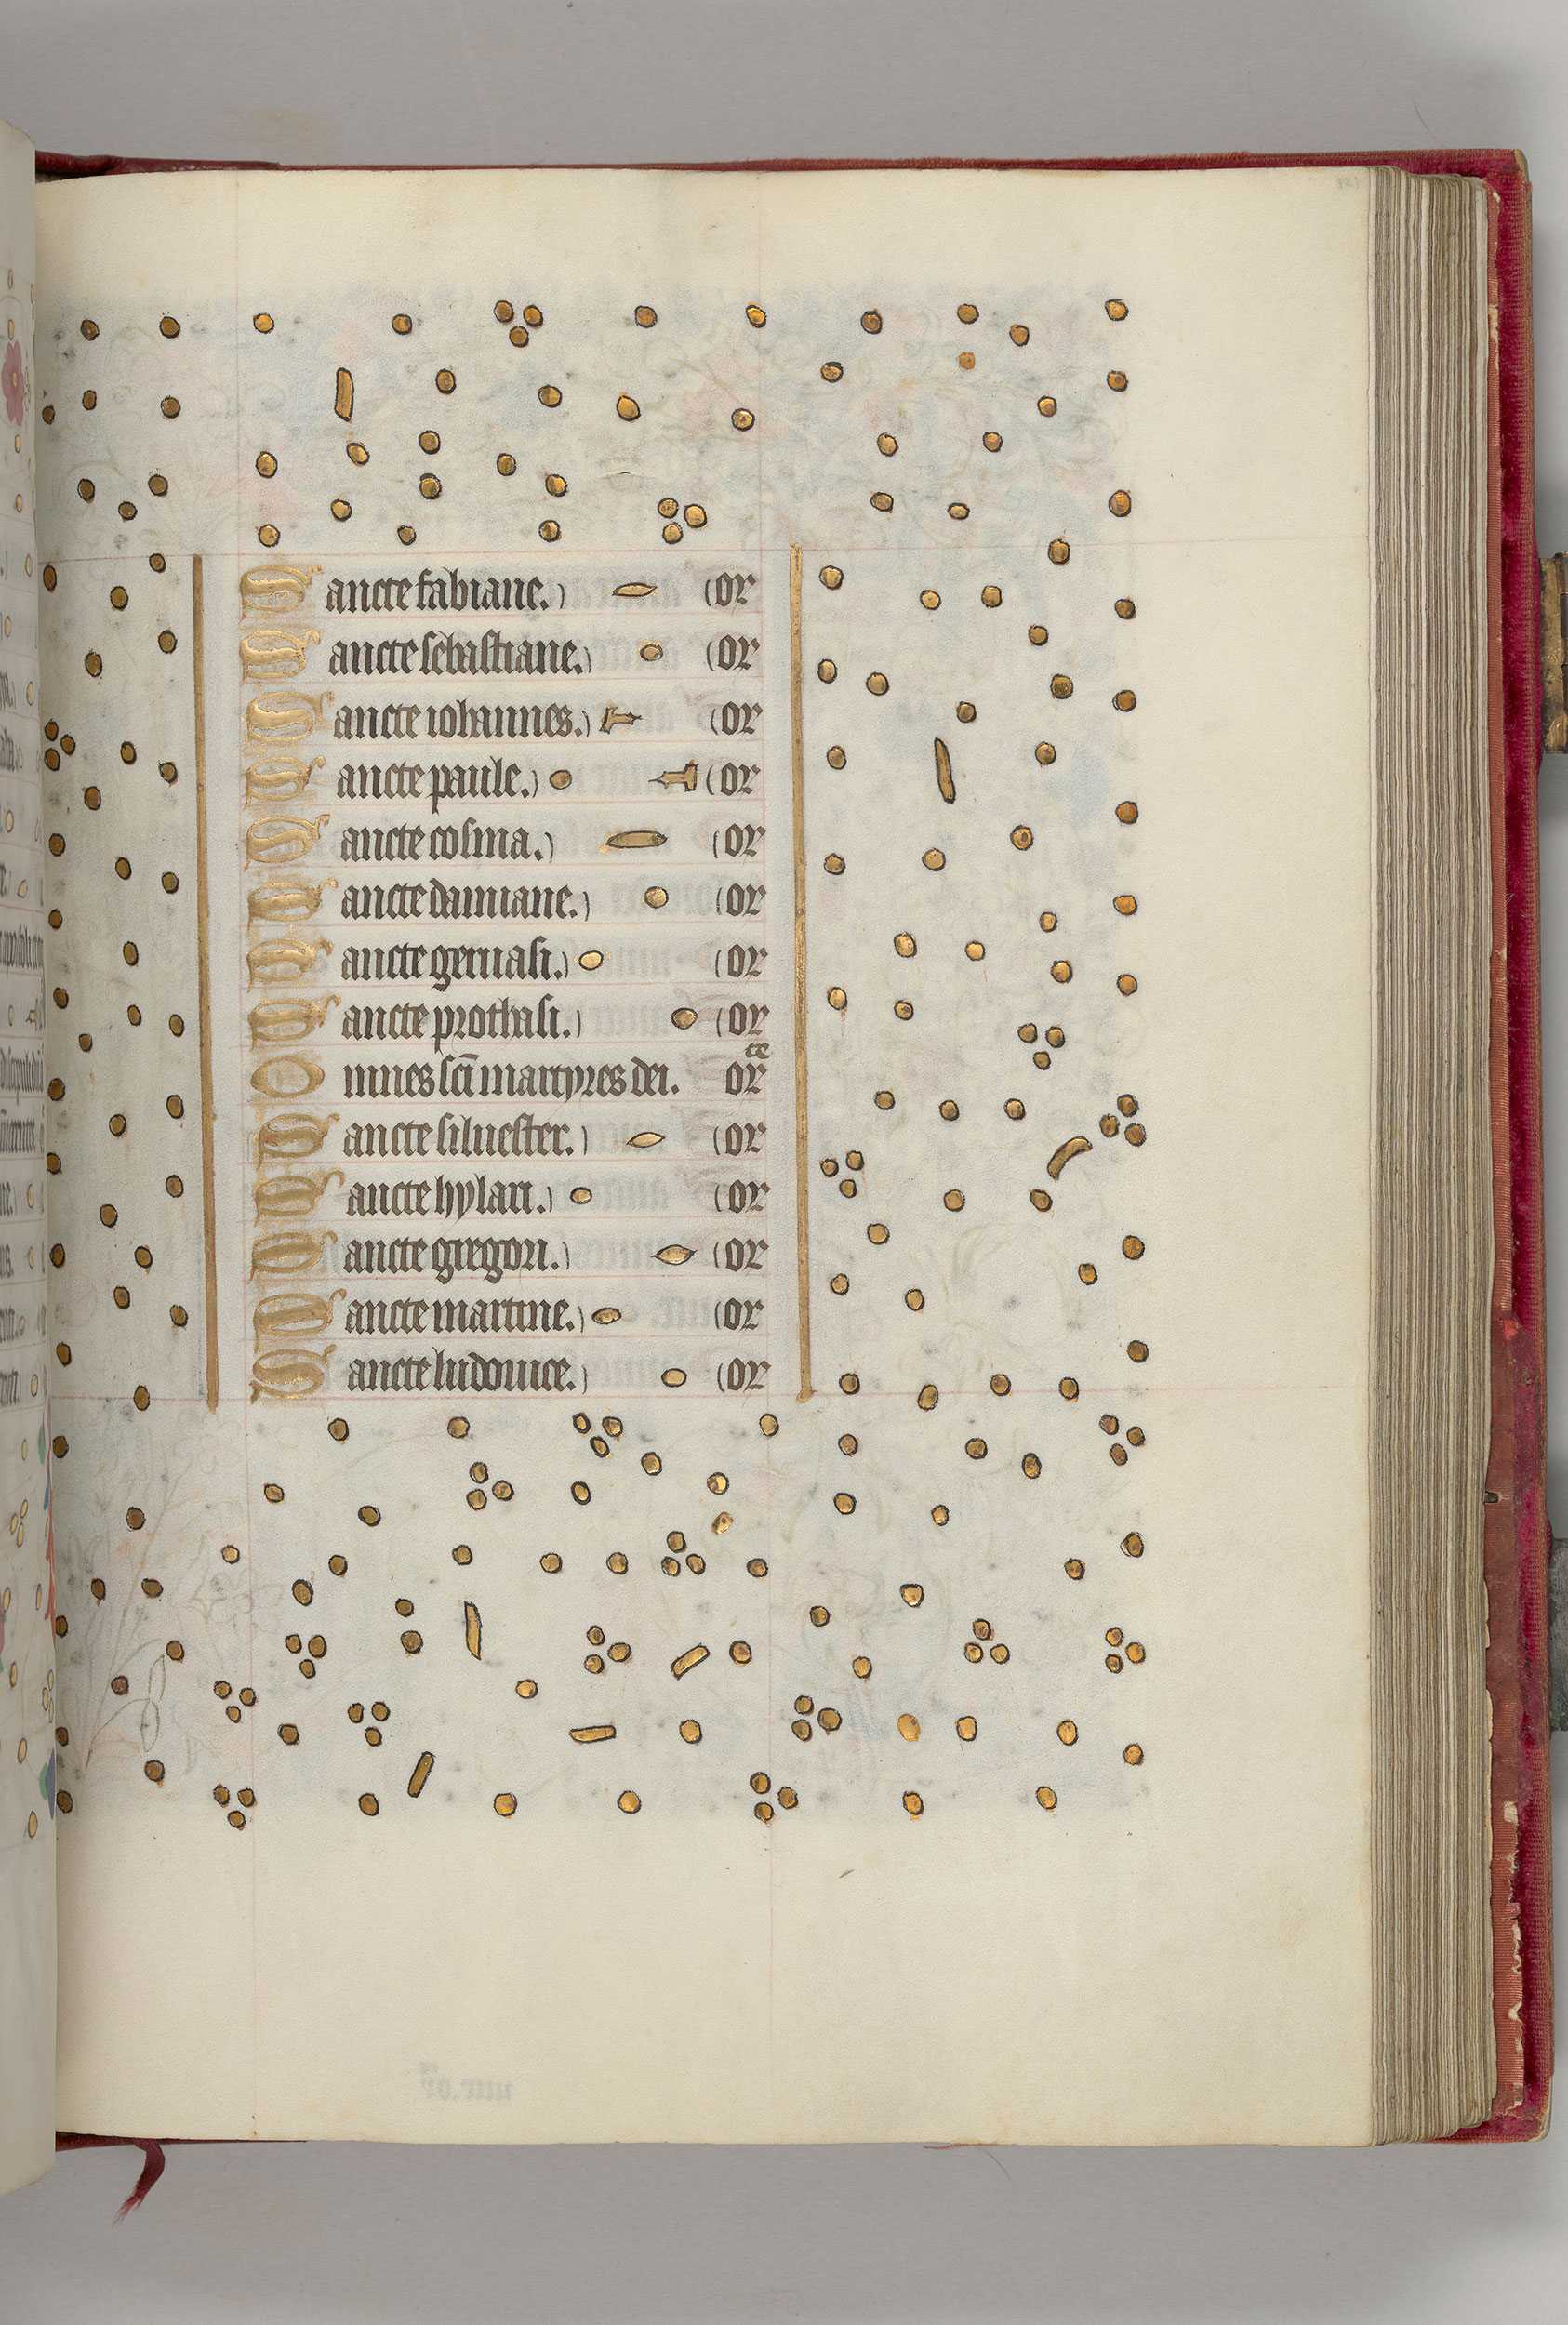 Sancte fabiane. or
Sancte sebastiane. or
Sancte iohannes. or
Sancte paule. or
Sancte cosma. or
Sancte damiane. or
Sancte geruasi. or
Sancte prothasi. or
Omnes sc̄i martyres dei. orte
Sancte siluester. or
Sancte hylari. or
Sancte gregori. or
Sancte martine. or
Sancte ludouice. or